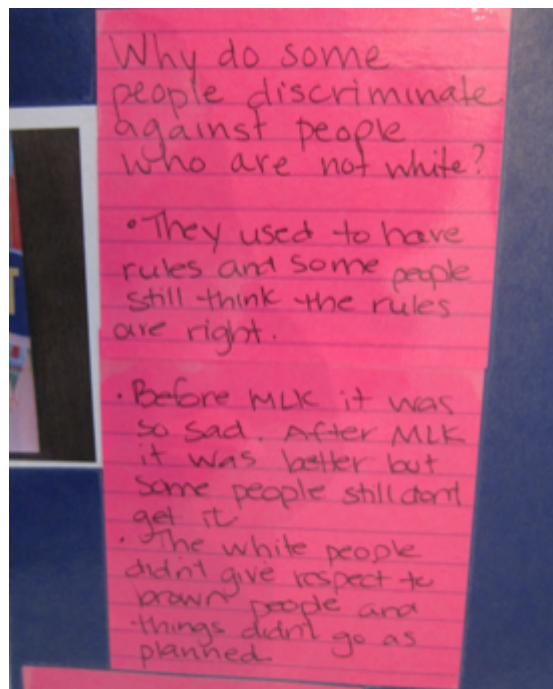 Why do some
people discriminate
against people
who are not white?
• They used to have
rules and some people
still think the rules
are right.
• Before MLK it was
so sad. After MLK
it was better but
some people still don't
get it.
• The white people
didn't give respect to
brown people and
things didn't go as
planned.